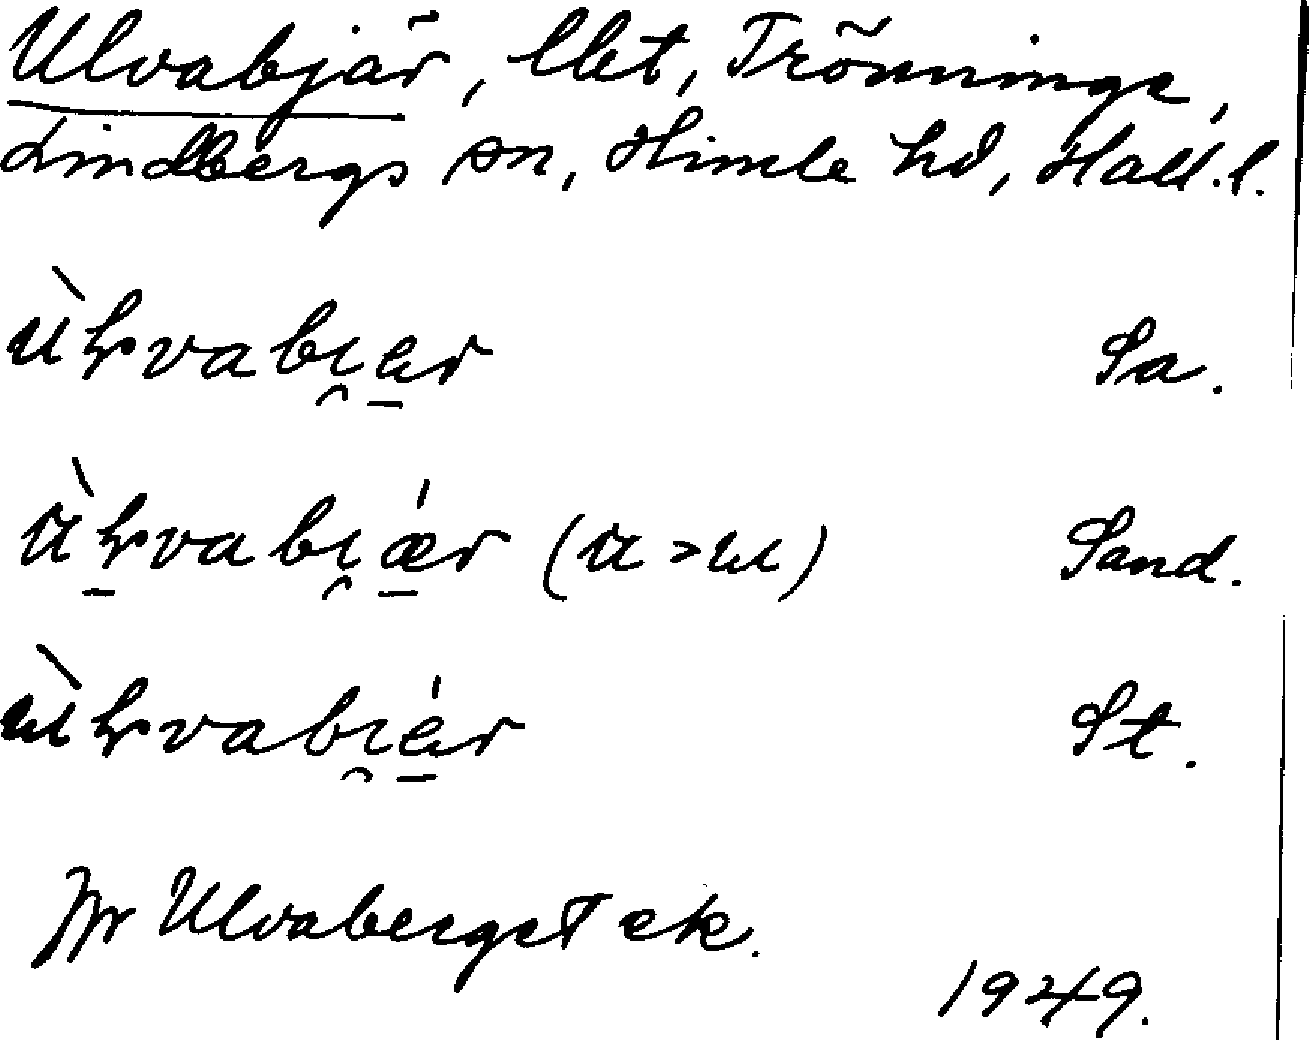 Ulvabjär, lht, Trönninge,
Lindbergs sn, Himle hd, Hall. l.
ùƚvabi̯e̠r Sa.
ù̠ƚvabi̯ǽ̠r (u > ɯ) Sand.
ɯ̀ƚvabi̯é̠r St.
Jfr Ulvaberget ek.
1949.